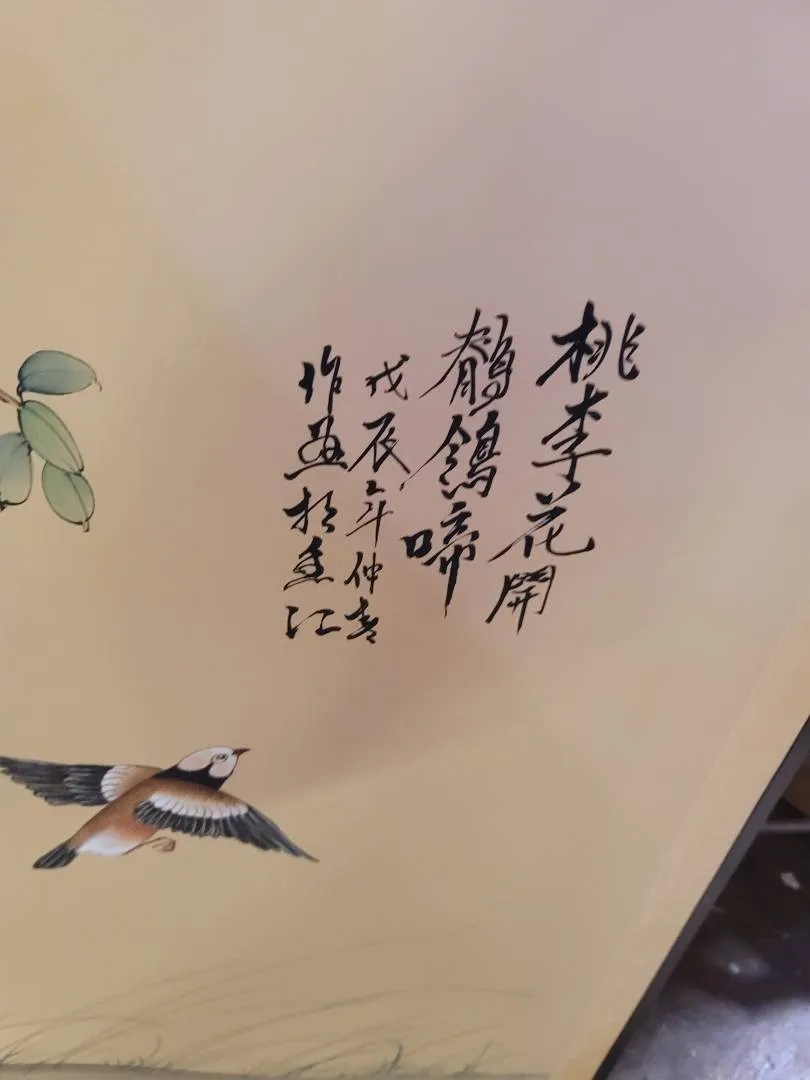 桃李花開
鶺鴒啼
戊辰年仲春
作畫於香江